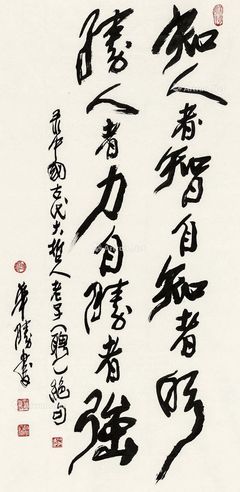 知人者智自知者明
勝人者力自勝者強
中國古代大哲人老子（聃）絕句
華勝書